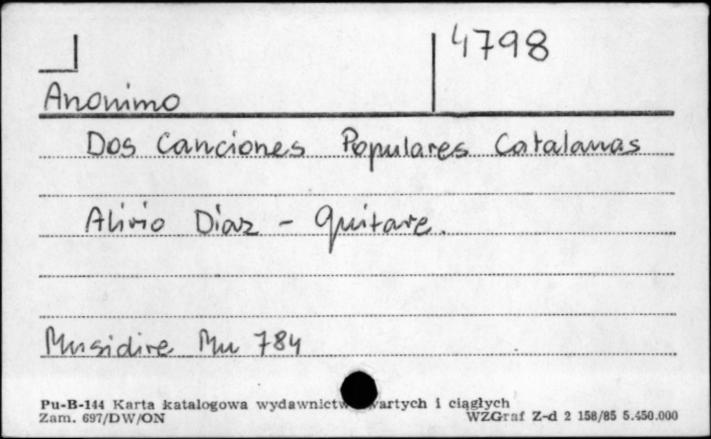 4798
Anonimo
Dos Canciones Populares Catalanas
Alirio Diaz - Guitare.
Musidire Mu 784
Pu-B-144 Karta katalogowa wydawnictw zwartych i ciągłych
Zam. 697/DW/ON WZGraf Z-d 2 158/85 5.450.000